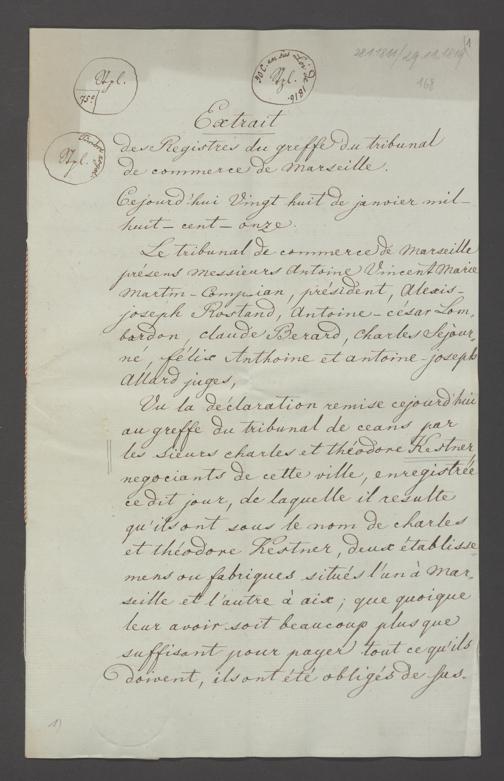 281 1811/29 11 1819
1
168
Stpl.
75c
20 C. en sus Loi de 1816.
Stpl.
Stpl.
Extrait
des Registres du greffe du tribunal
de commerce de Marseille.
Cejourd'hui Vingt huit de janvier mil
huit-cent-onze.
Le tribunal de commerce de Marseille
présens Messieurs Antoine Vincent Marie
Martin-Compian, président, Alexis-
joseph Rostand, Antoine-césar Lom-
bardon, claude Berard, Charles Séjour-
né, félix Anthoine et antoine-joseph
Allard juges,
Vu la déclaration remise cejourd'hui
au greffe du tribunal de ceans par
les sieurs charles et théodore Kestner,
negociants de cette ville, enregistrée
cedit jour, de laquelle il resulte
qu'ils ont sous le nom de charles
et théodore Kestner, deux établisse-
mens ou fabriques situés l'un à Mar-
seille et l'autre à aix; que quoique
leur avoir soit beaucoup plus que
suffisant pour payer tout ce qu'ils
doivent, ils ont été obligés de sus-
1)